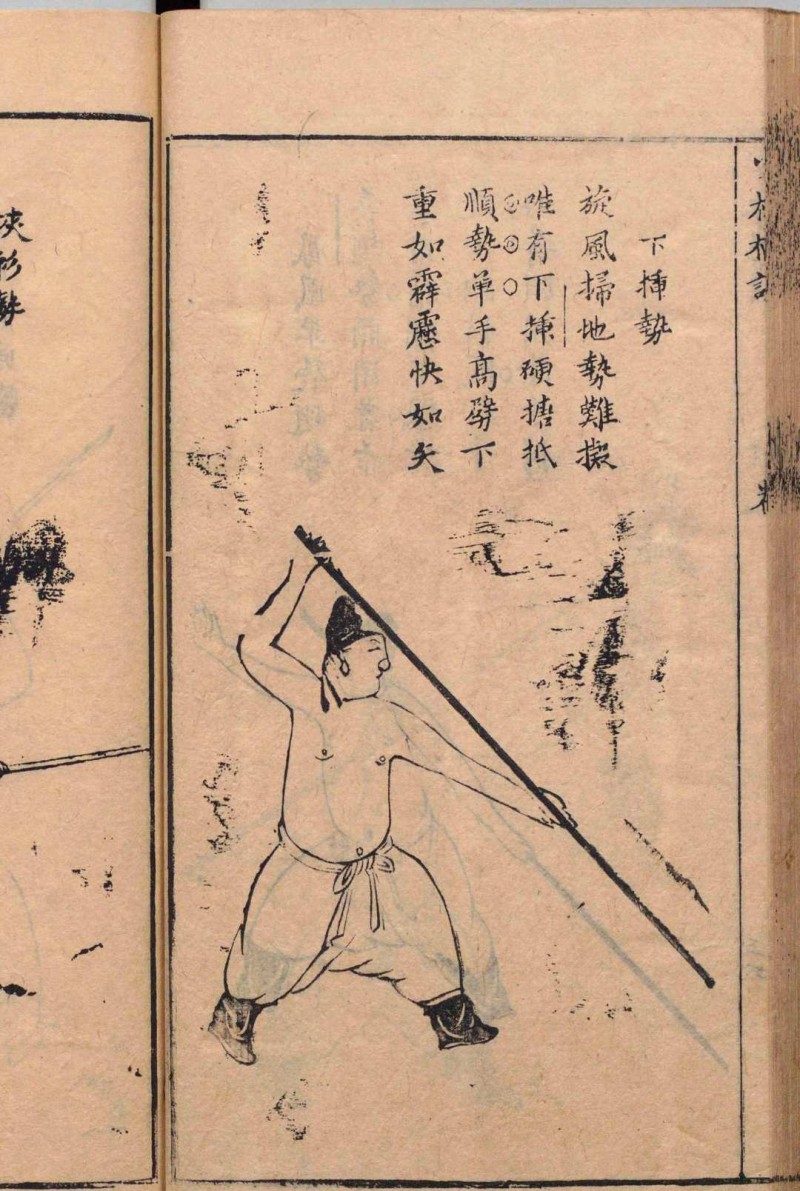 下挿勢
旋風掃地勢難擬
唯有下挿硬搪抵
順勢单手高劈下
重如霹靂快如矢